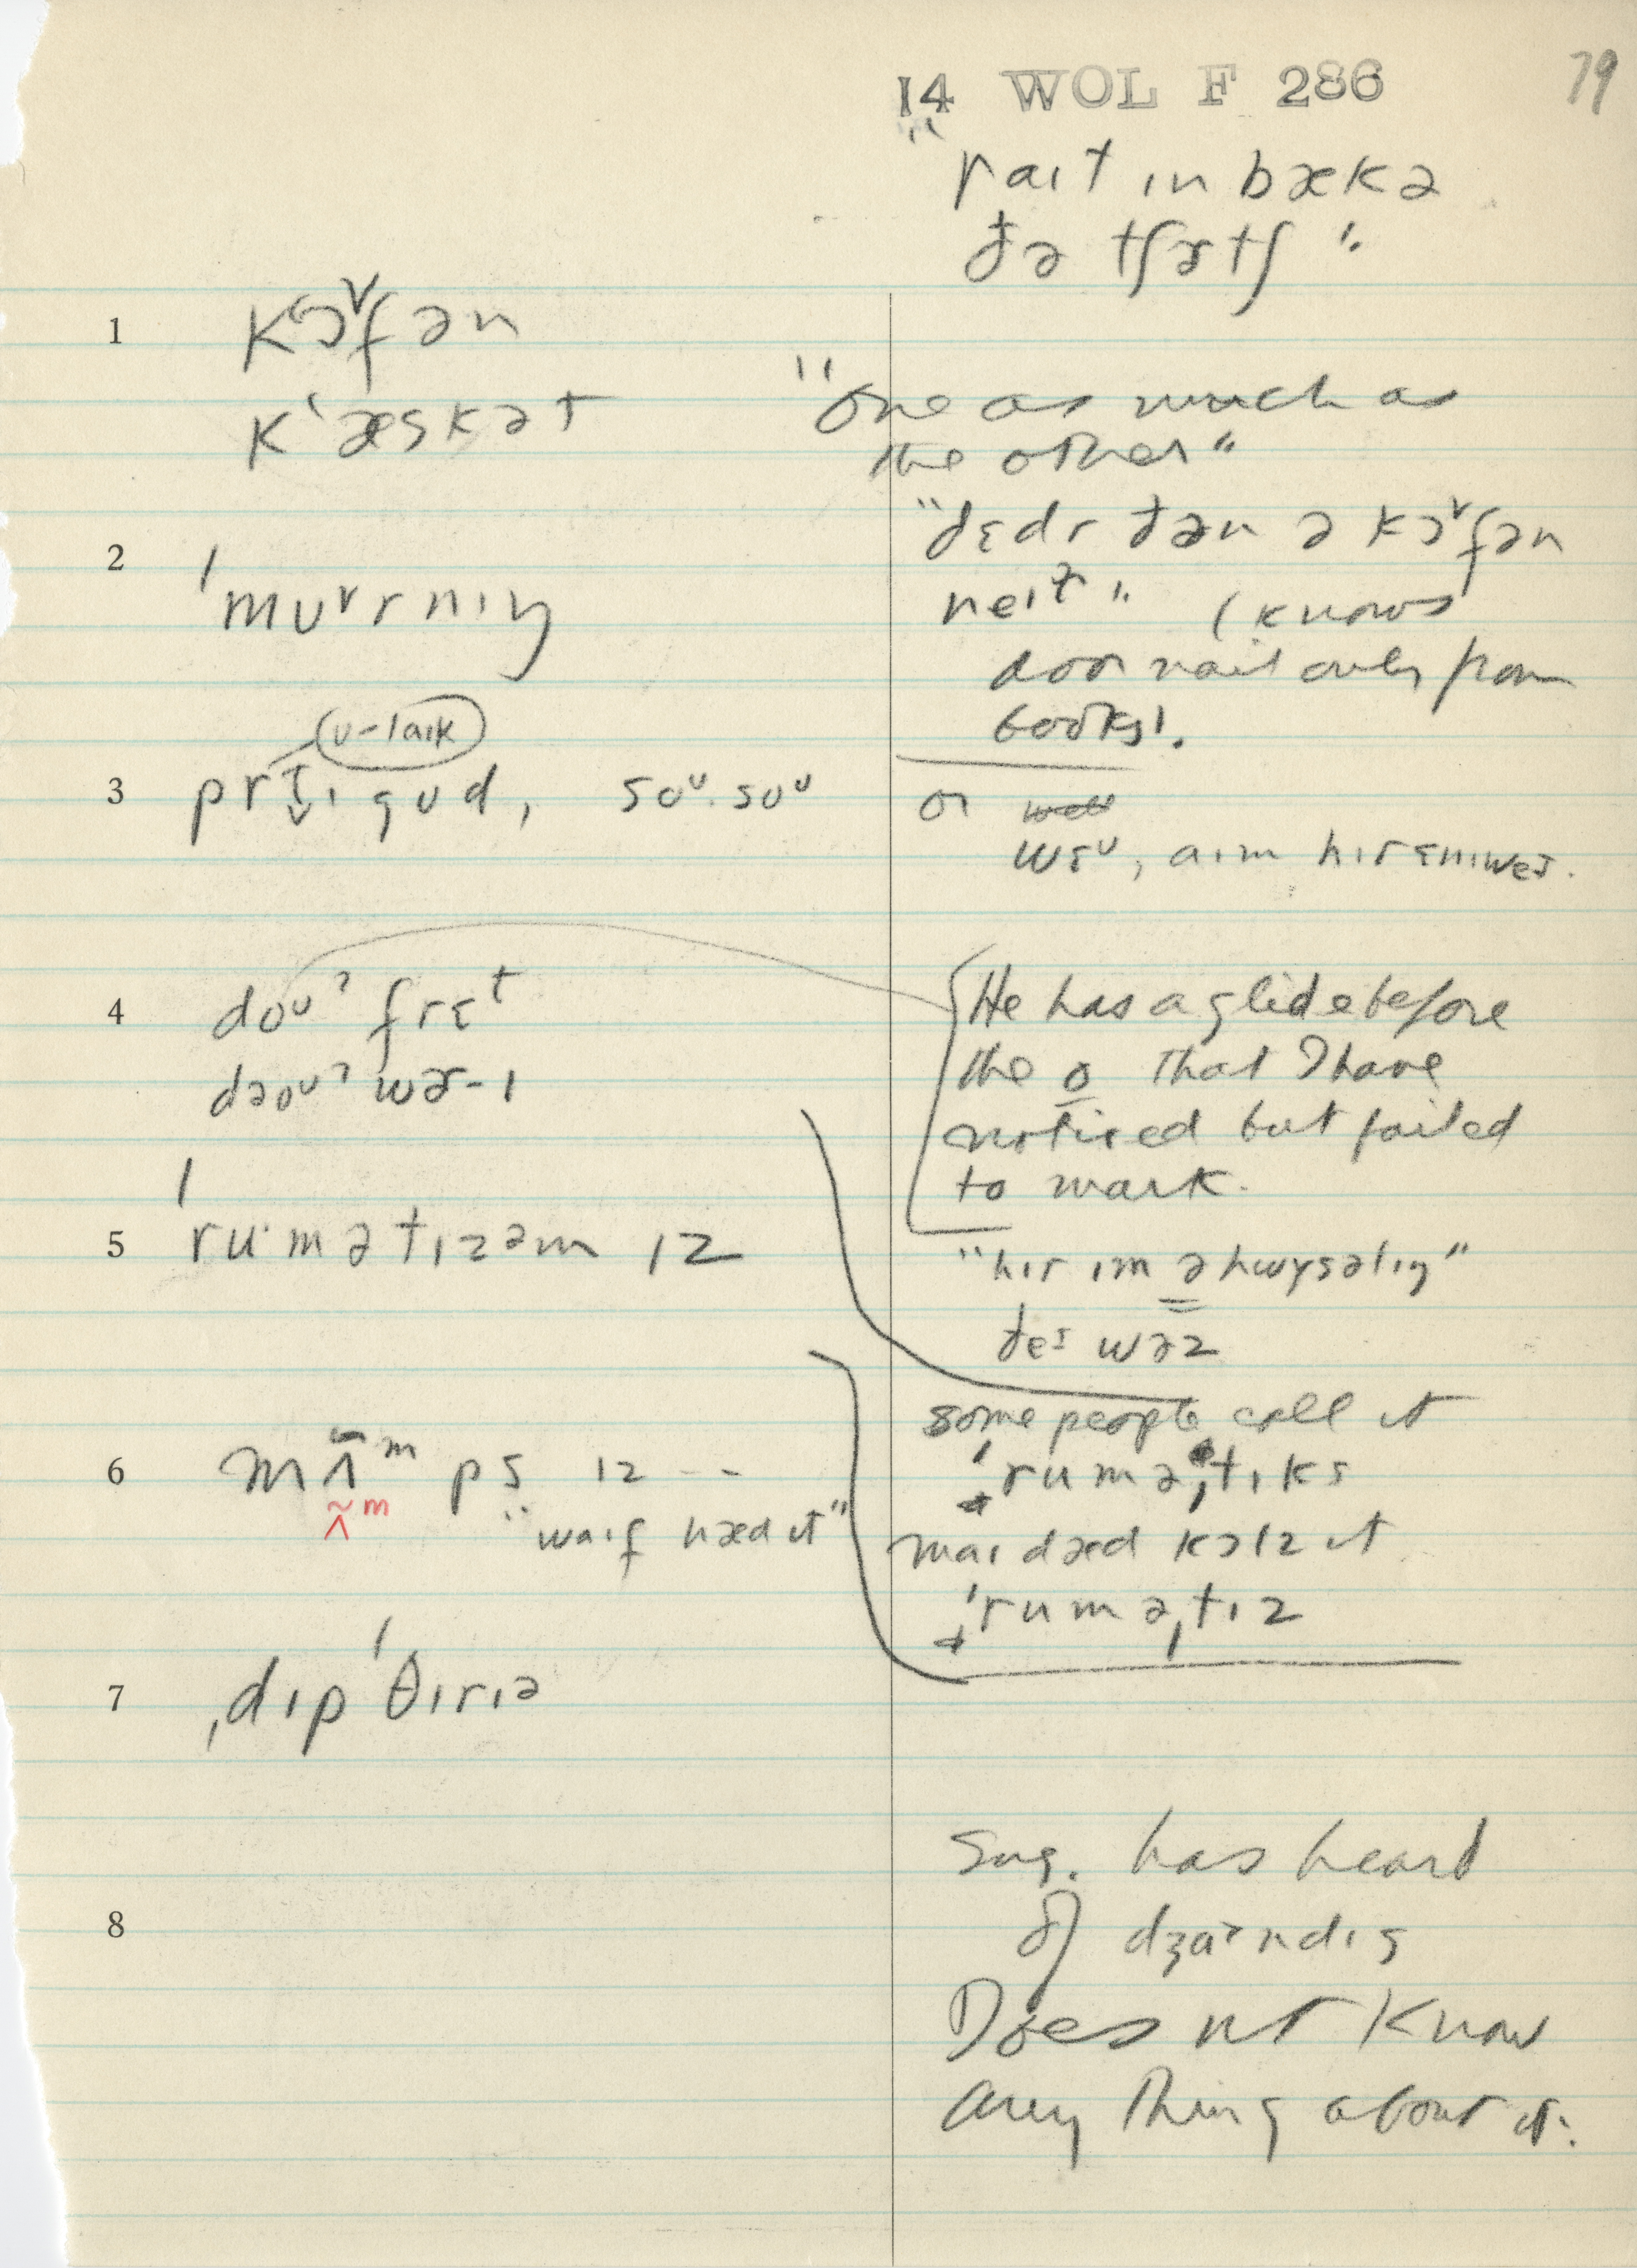 14 WOL F 286
79
"raɪt ɪn bækə
ðə tʃɜtʃ"
1 kʽɔᵛfən
kʽæskət
"One as much as
the other"
"dɛdr ðən ə kɔᵛfən
neɪɫ" (knows
door nail only from
books).
2 ˈmʊᵛrnɪŋ
u-laɪk
3 prɪ̞ɪ gʊd, soᶷ. soᶷ
or well
wɛᶷ, aɪm hɪr ɛnɪweɪ.
4 doᶷʔ frɛᵗ
dəoᶷʔ wɜ-ɪ
He has a glide before
the o that I have
noticed but failed
to mark.
5 ˈru·mətɪzəm ɪz
"hɪr ɪm ə hwɪsəlɪŋ"
ðeɪ wəz
some people call it
ˈruməˌtɪks
maɪ dæd kɔlz it
ˈruməˌtɪz
6 mʌ̃ᵐps ɪz --
ʌ̃ᵐ
"waɪf hæd ɪt"
7 ˌdɪpˈθɪrɪə
8
Sug. has heard
of dʒɑ˃ndɪs
Does not know
anything about it.